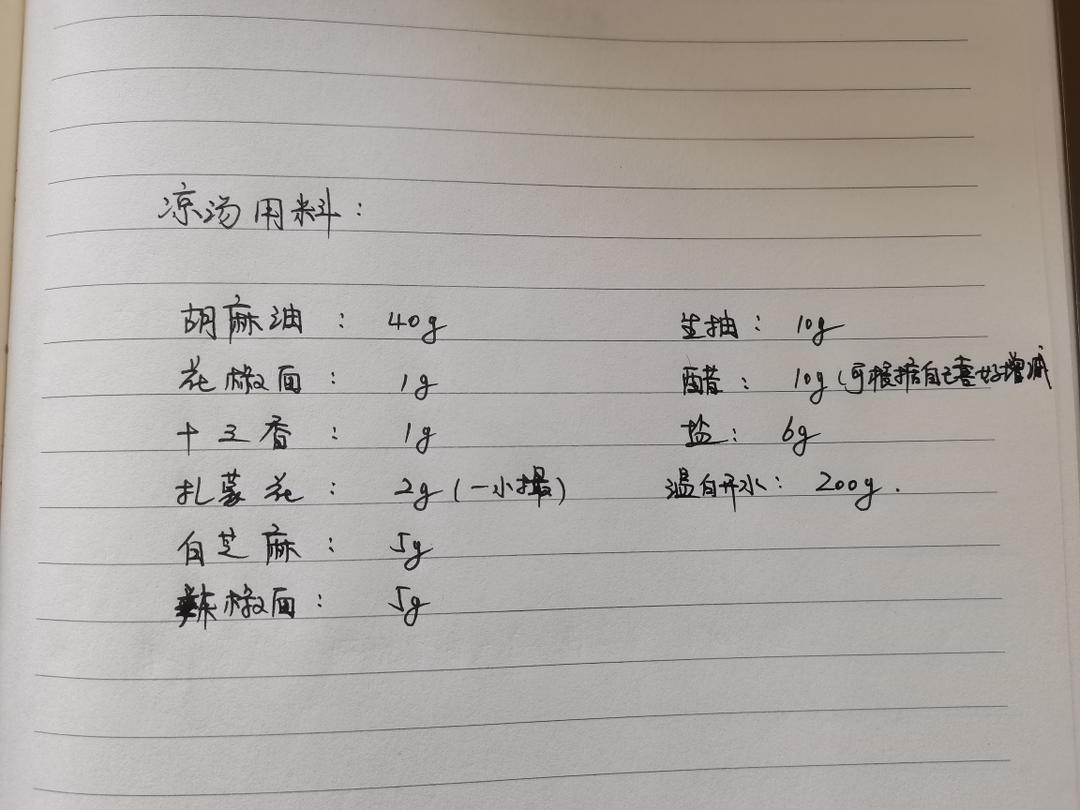 凉汤用料：
胡麻油：40g 生抽：10g
花椒面：1g 醋：10g（可根据自己喜好增减
十三香：1g 盐：6g
扎蒙花：2g（一小撮） 温白开水：200g.
白芝麻：5g
辣椒面：5g